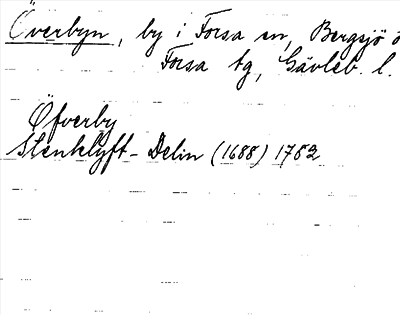 Överbyn, by i Forsa sn, Bergsjö o
Forsa tg, Gävleb. l.
Öfverby
Stenklyft - Delin (1688) 1752